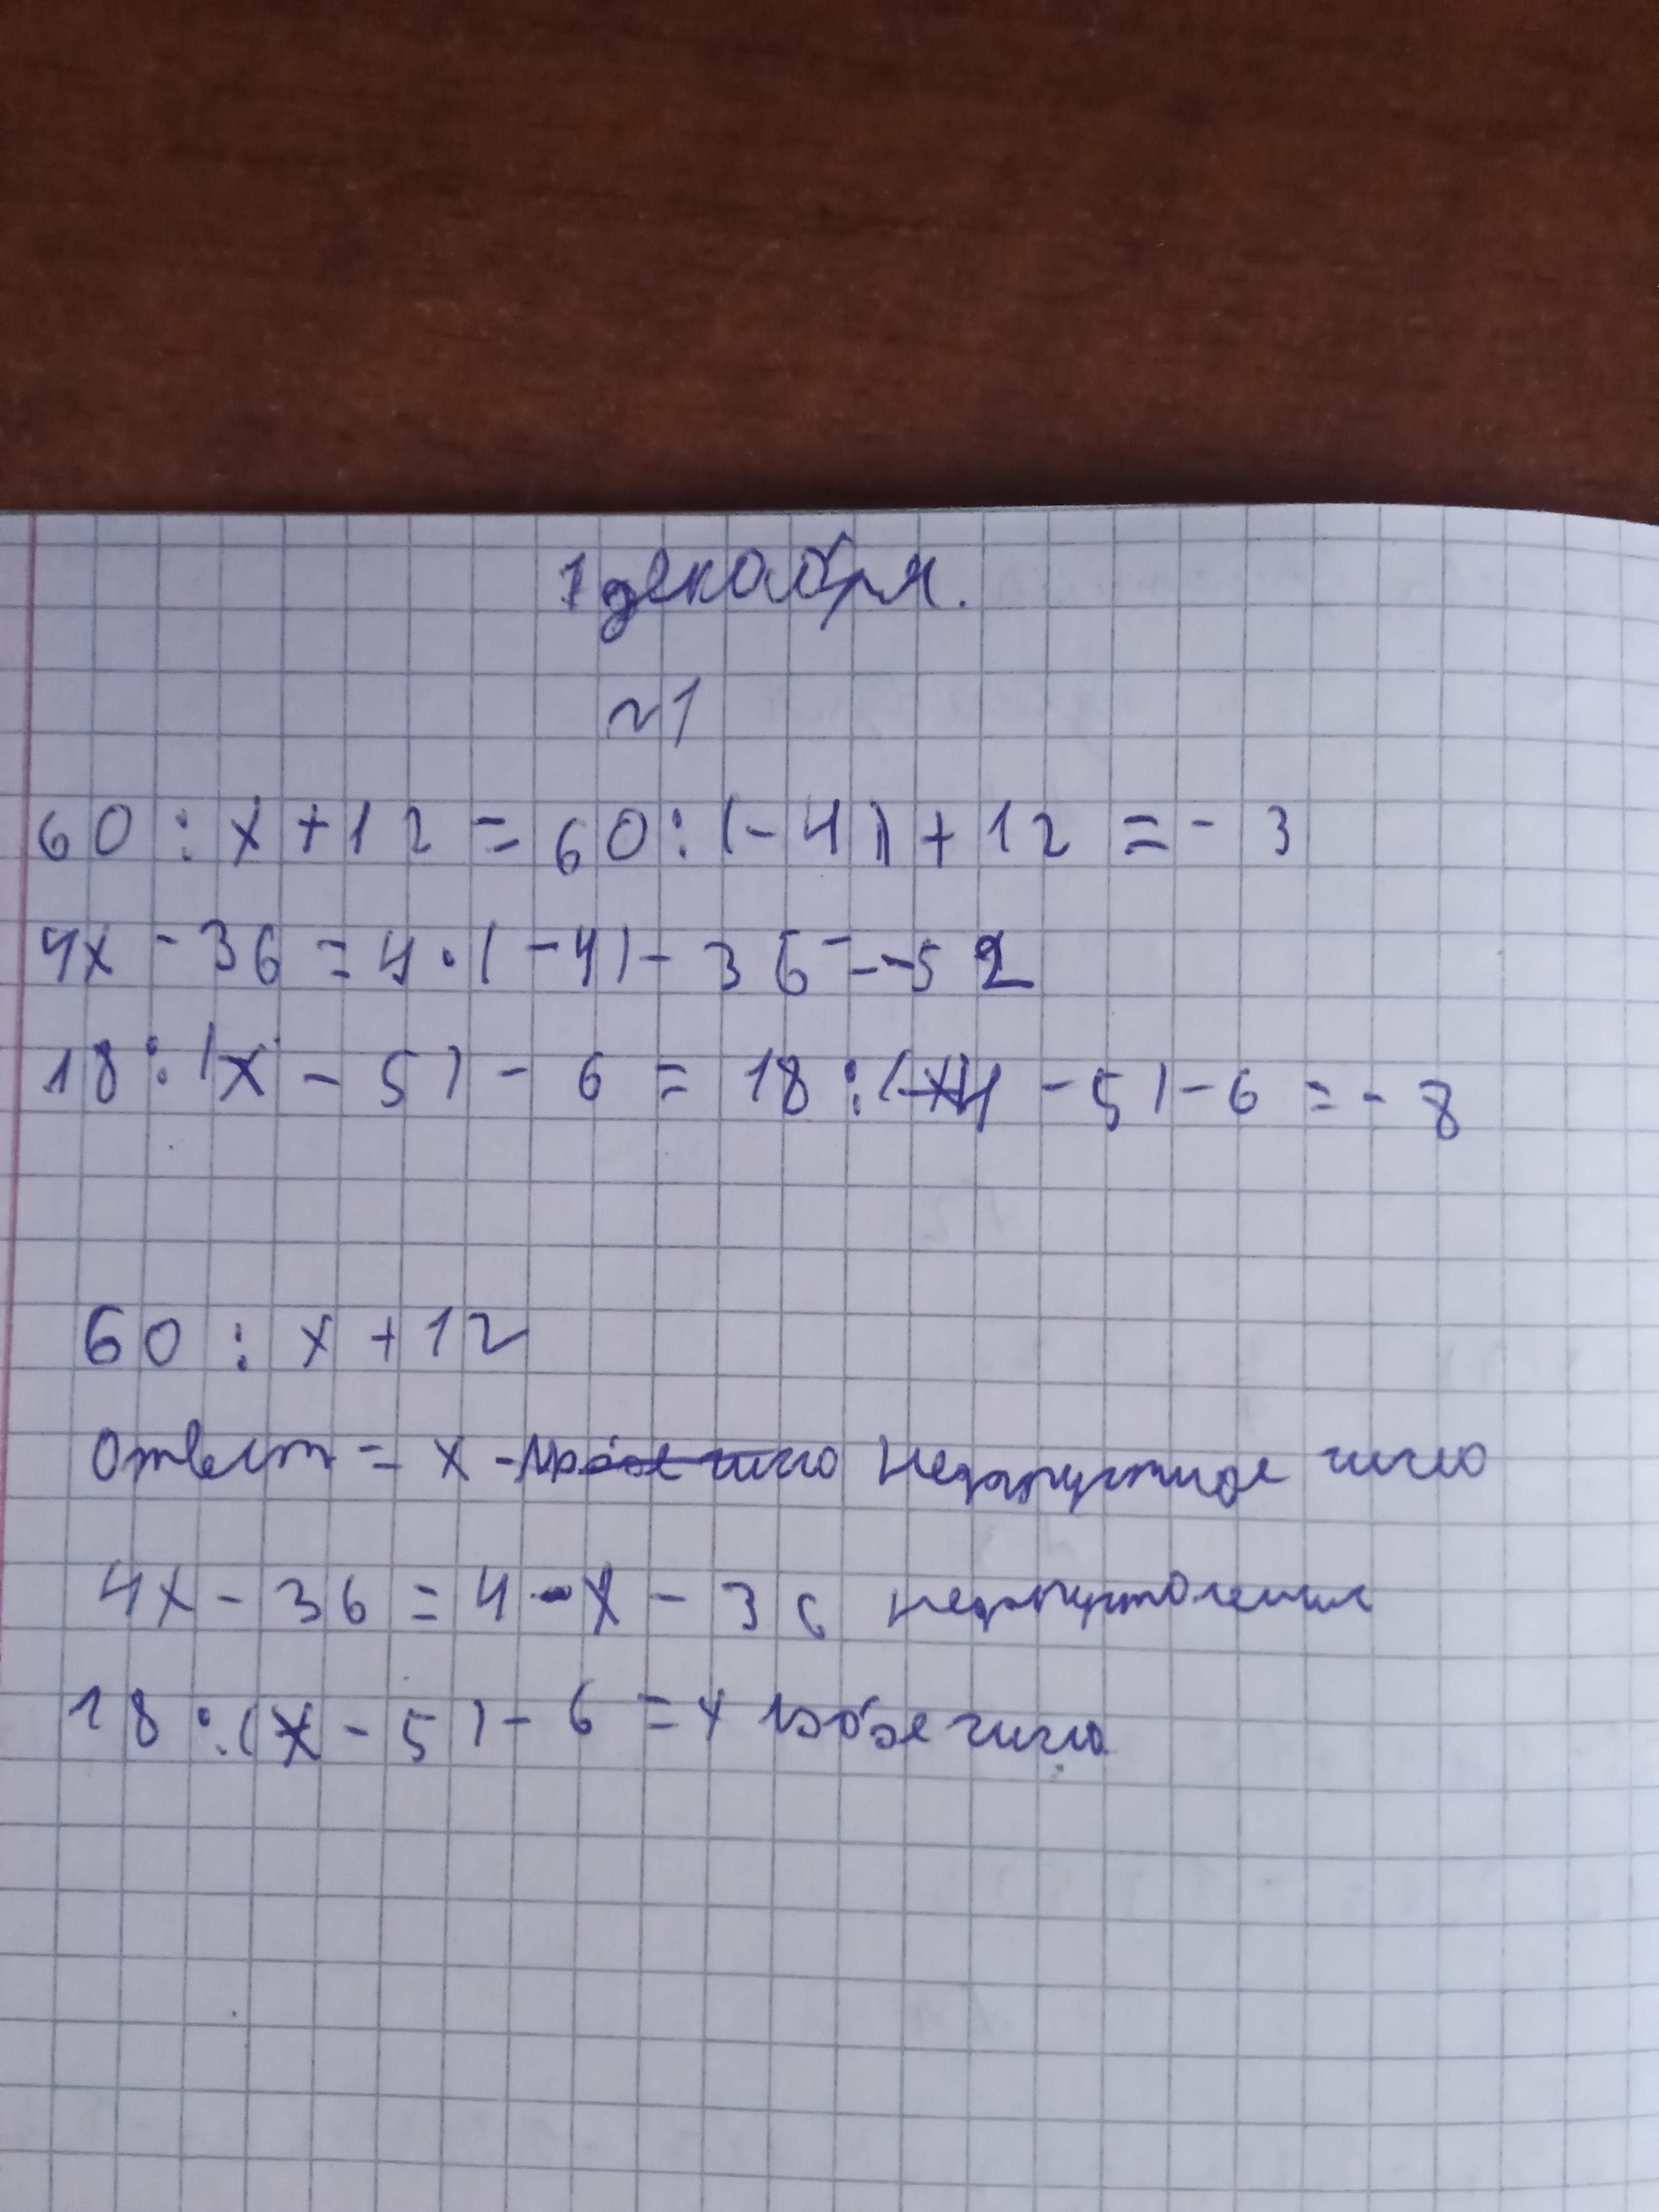 1 декабря.
№1
60 : x + 12 = 60 : (-4) + 12 = - 3
4x - 36 = 4 · (-4) - 36 = -52
18 : (x - 5) - 6 = 18 : (-4 - 5) - 6 = - 8
60 : x + 12
Ответ = x - число недопустимое число
4x - 36 = 4 - x - 36
18 : (x - 5) - 6 = x число